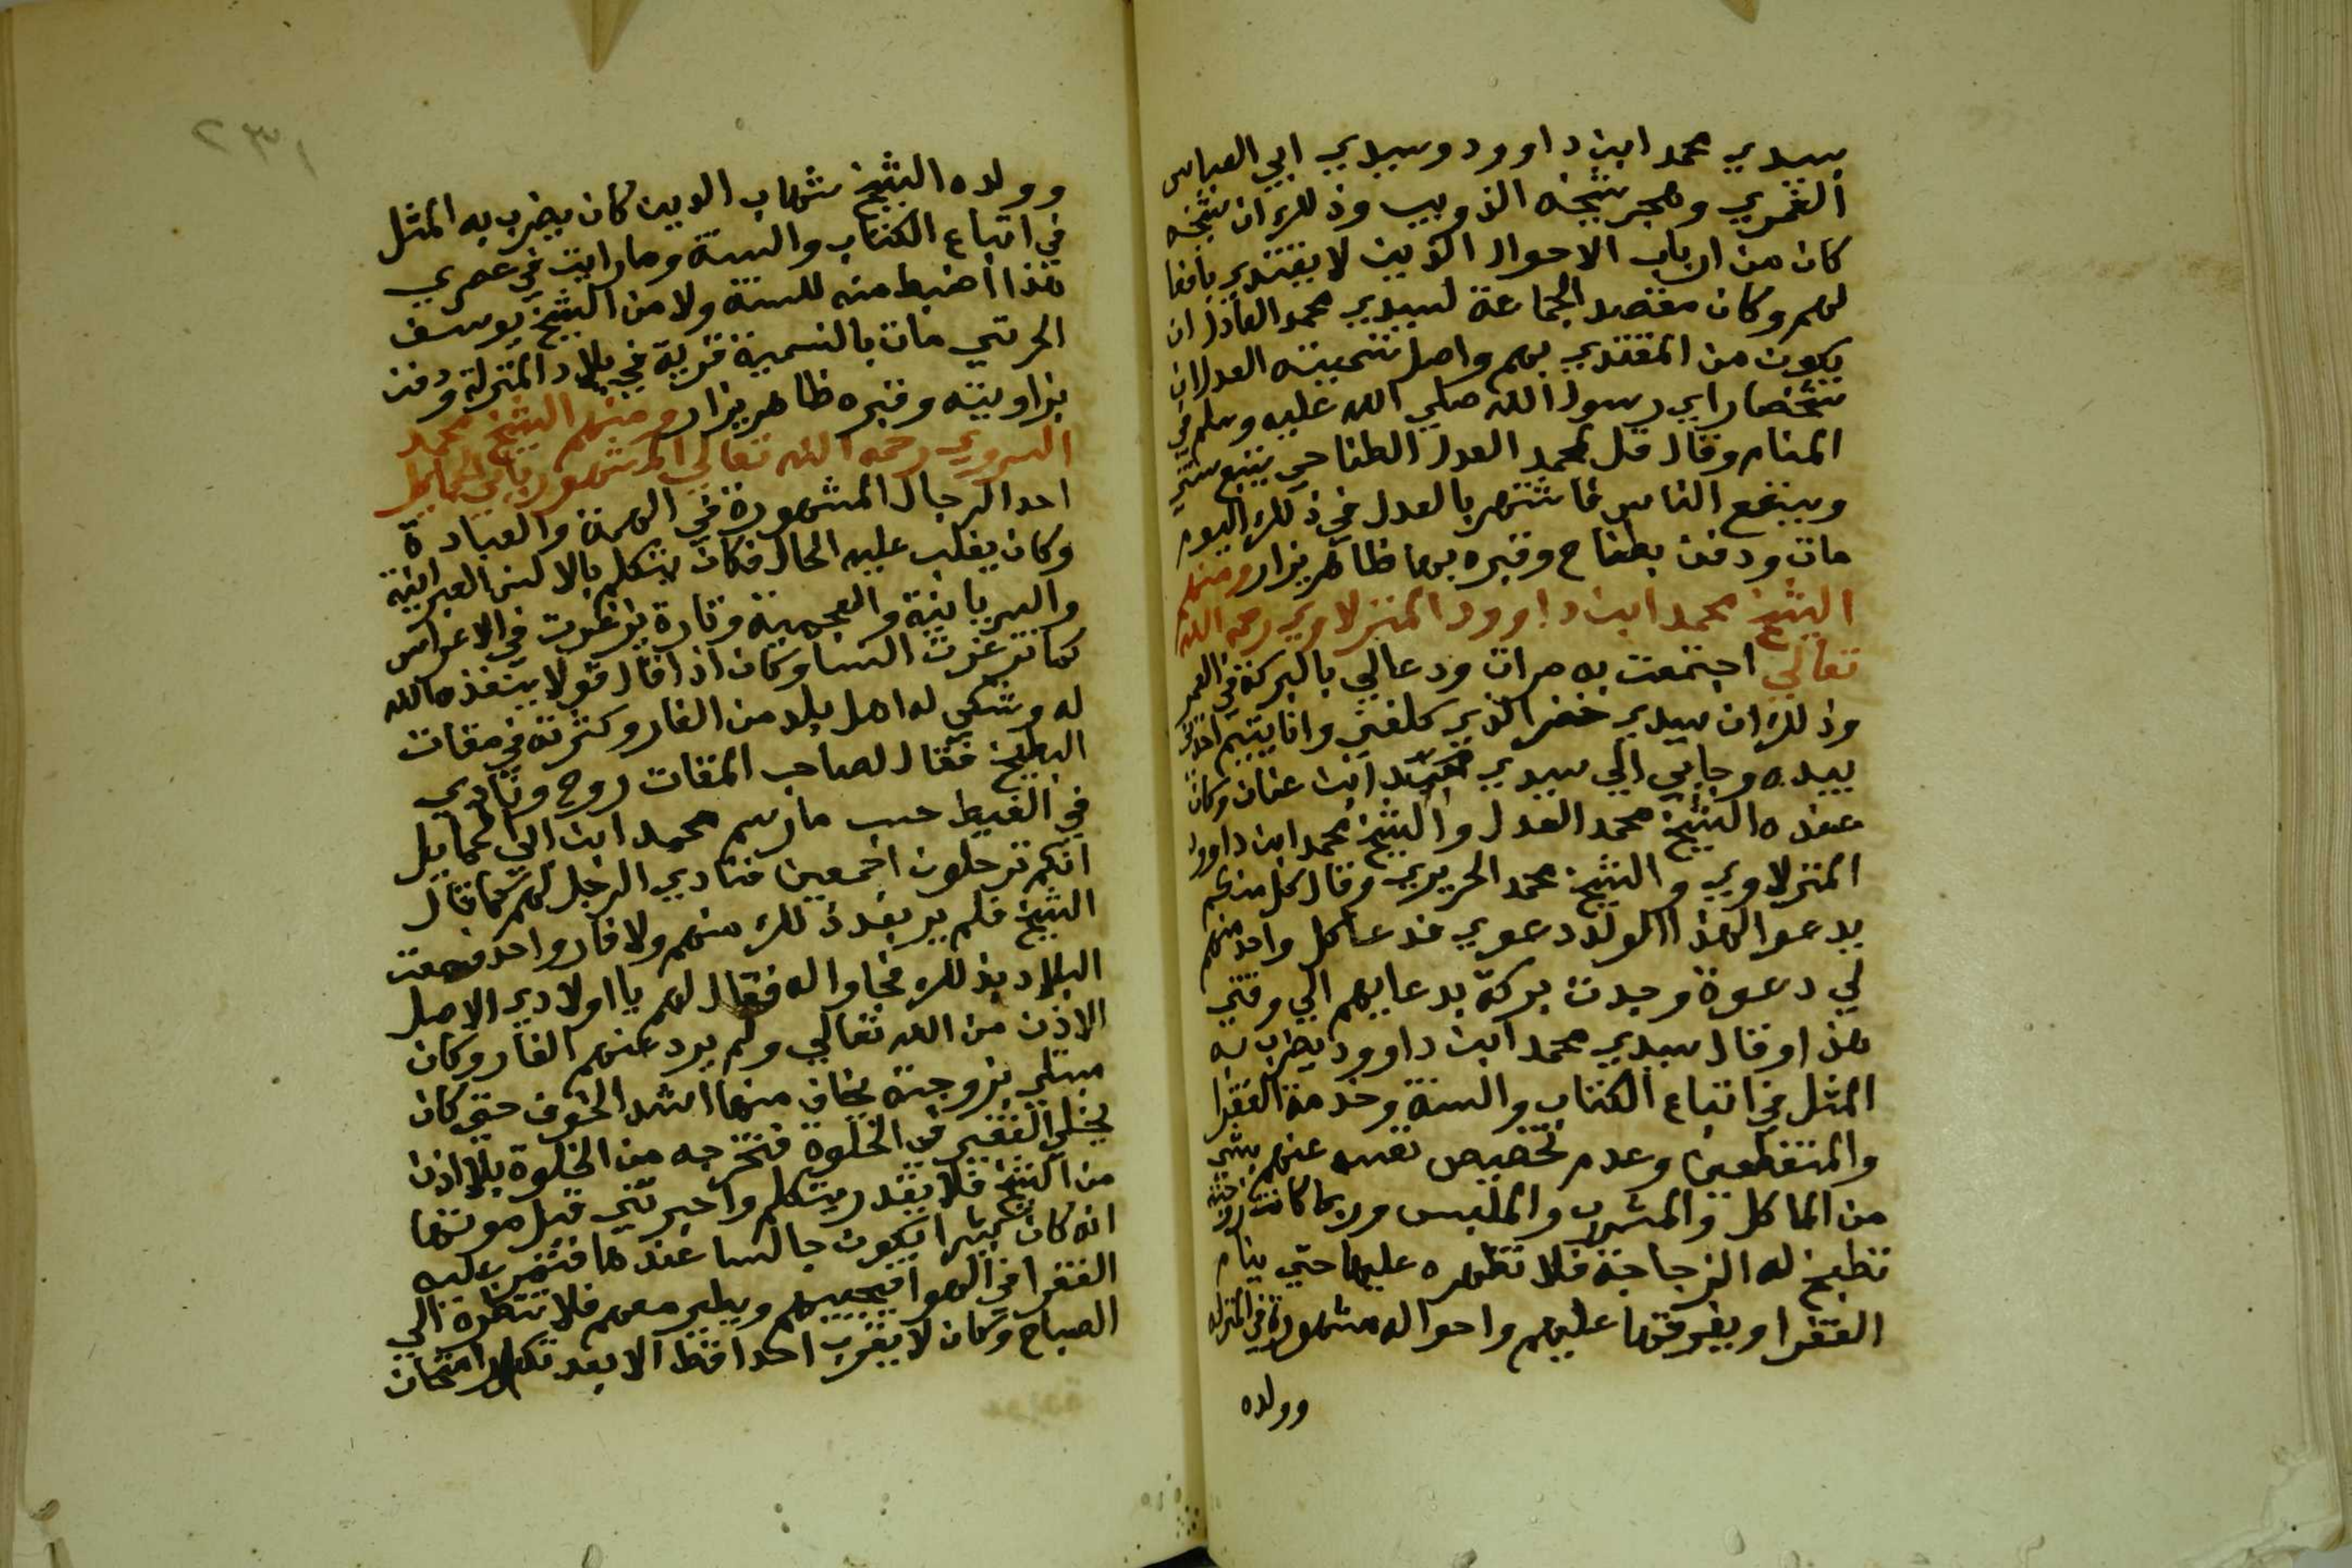 سيدي محمد ابن داوود وسيدي ابي العباس
الغمري وهجر شيخه الذويب وذلك ان شيخه
كان من ارباب الاحوال الذين لا يقتدي بافعا
لهم وكان مقصد الجماعة لسيدي محمد العادل ان
يكون من المقتدي بهم واصل تسميته العدل ان
شخصا راي رسول الله صلي الله عليه وسلم في
المنام وقال قل لمحمد العدل الطناحي يتبع سنتي
وينفع الناس فاشتهر بالعدل في ذلك اليوم
مات ودفن بطناح وقبره بها ظاهر يزار ومنهم
الشيخ محمد ابن داوود المنزلاوي رحمه الله
تعالي اجتمعت به مرات ودعالي بالبركة في العمر
وذلك ان سيدي خضر الذي كلفني وانا يتيم اخذني
بيده وجابي الي سيدي محمد ابن عنان وكان
عنده الشيخ محمد العدل والشيخ محمد ابن داوود
المنزلاوي والشيخ محمد الحريري وقال كل منكم
يدعوا لهذا الولد دعوي فدعا كل واحد منهم
لي دعوة وجدت بركة بدعايهم الي وقتي
هذا وقال سيدي محمد ابن داوود يضرب به
المثل في اتباع الكتاب والسنة وخدمة الفقرا
والمنقطعين وعدم تخصيص نفسه عنهم بشي
من الماكل والمشرب والملبس وربما كانت زوجته
تطبخ له الزجاجة فلا تظهره عليها حتي ينام
الفقرا ويفرقها عليهم واحواله مشهورة في المنزله
وولده
٢٣١
وولده الشيخ شهاب الدين كان يضرب به المثل
في اتباع الكتاب والسنة وما رايت في عصري
هذا اضبط منه للسنة ولا من الشيخ يوسف
الحريثي مات بالنسمية قرية في بلاد المنزلة ودفن
بزاويته وقبره ظاهر يزار ومنهم الشيخ محمد
السروي رحمه الله تعالي المشهور بابي الحمايل
احد الرجال المشهورة في الهمة والعبادة
وكان يغلب عليه الحال فكان يتكلم بالالسن العبرانية
والسريانية والعجمية وتارة يزغرت في الاعراس
كما تزغرت النسا وكان اذا قال قولا ينفذه الله
له وشكي له اهل بلد من الفار وكثرته في مقات
البطيخ فقال لصاحب المقات روح ونادي
في الغيط حسب ما رسم محمد ابن ابي الحمايل
انكم ترحلون اجمعين فنادي الرجل لهم كما قال
الشيخ فلم ير بعد ذلك منهم ولا فار واحد فسمعت
البلاد بذلك فجاوا له فقال لهم يا اولادي الاصل
الاذن من الله تعالي ولم يرد عنهم الفار وكان
مبتلي بزوجة يخاف منها اشد الخوف حتي كان
يخلي الفقير في الخلوة فتخرجه من الخلوة بلا اذن
من الشيخ فلا يقدر يتكلم واخبرتني قبل موتها
انه كان كثيرا يكون جالسا عندها فتمر عليه
الفقرا في الهوا فيجيبهم ويطير معهم فلا تنظره الي
الصباح وكان لا يقرب احدا قط الا بعد تكرار امتحان